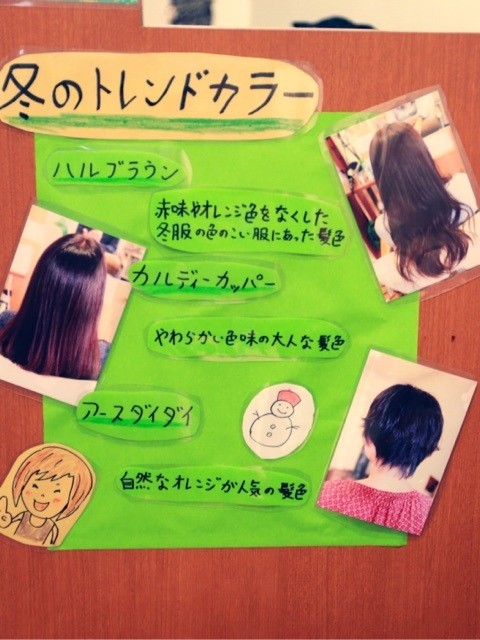 冬のトレンドカラー
ハルブラウン
赤味やオレンジ色をなくした
冬服の色のこい服にあった髪色
カルディーカッパー
やわらかい色味の大人な髪色
アースダイダイ
自然なオレンジが人気の髪色